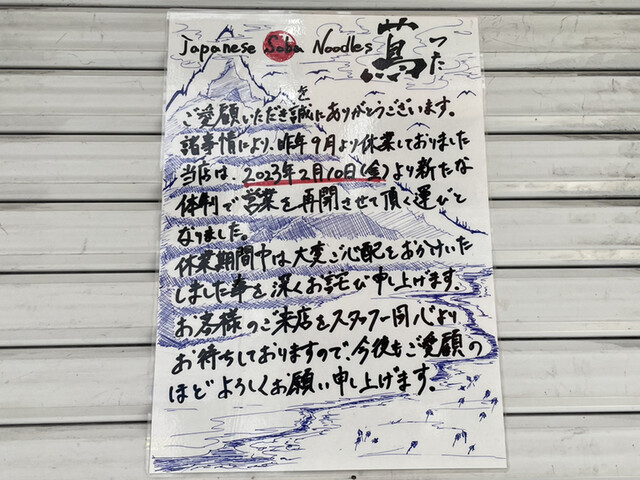 Japanese Soba Noodles 蔦 つた
を
ご愛顧いただき誠にありがとうございます。
諸事情により、昨年9月より休業しておりました
当店は、2023年2月10日(金)より新たな
体制で営業を再開させて頂く運びと
なりました。
休業期間中は大変ご心配をおかけいた
しました事を深くお詫び申し上げます。
お客様のご来店をスタッフ一同心より
お待ちしておりますので、今後もご愛顧の
ほどよろしくお願い申し上げます。